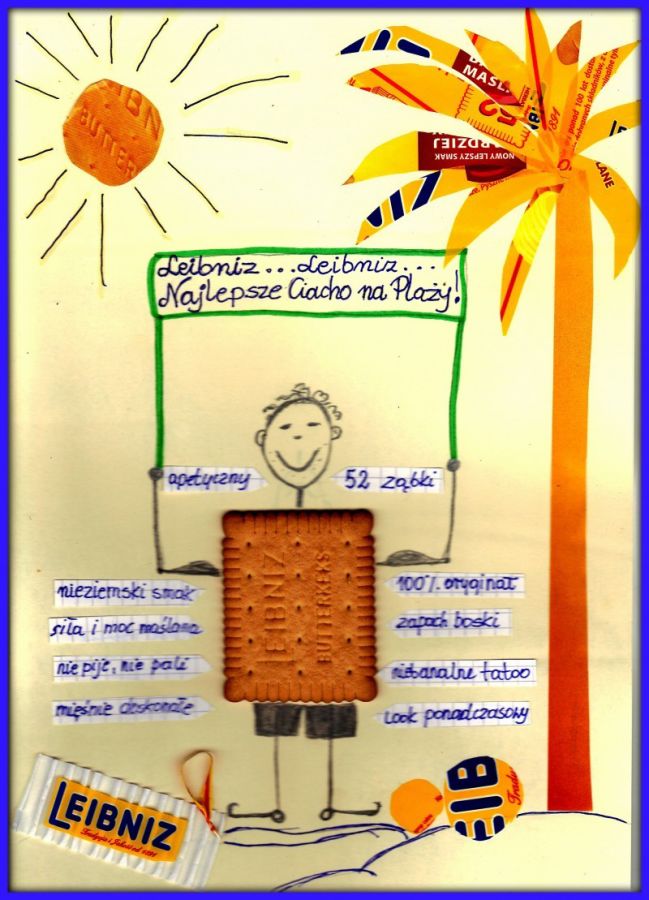 BUTTER
MAŚL
1891
NOWY LEPSZY SMAK
Leibniz...Leibniz...
Najlepsze Ciacho na Plaży!
apetyczny
52 ząbki
nieziemski smak
100% oryginał
siła i moc maślana
zapach boski
nie pije, nie pali
niebanalne tatoo
mięśnie doskonałe
Look ponadczasowy
LEIBNIZ
BUTTERKEKS
LEIBNIZ
Tradycja i Jakość od 1891
EIB